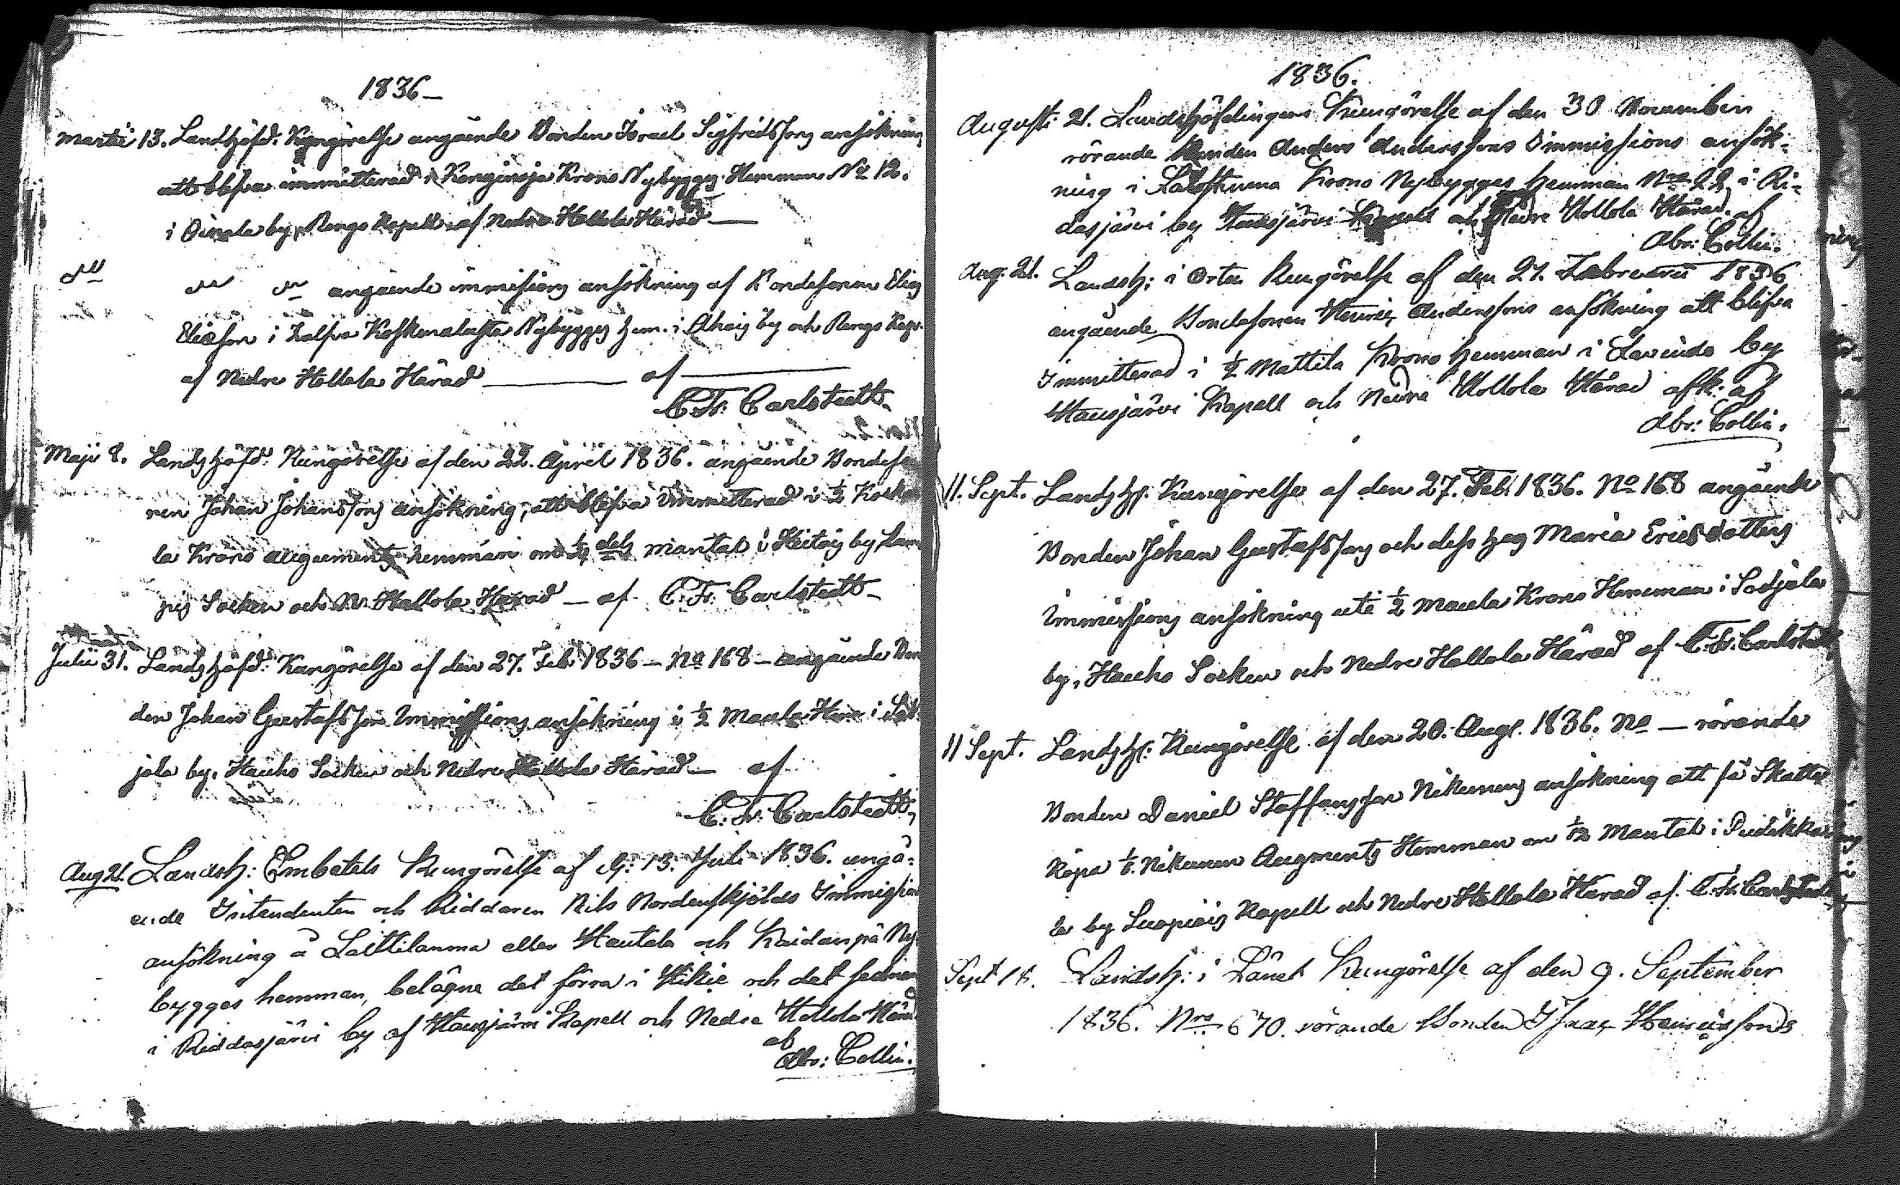 1836
Martii 13. Landshöfd. Kungörelse angående Bonden Israel Sigfridssons ansökning
att blifva immitterad i Krono Nybygges Hemman No 12.
i Oinala by, Rengo Kapell af Nedre Hollola Härad
do angående immissions ansökning af Bondesonen Elias
Eliasson i halfva Nybygges hem. i Ahois by och Rengo Kap.
af Nedre Hollola Härad af
C. Fr. Carlstedt
Maji 8. Landshöfd. Kungörelse af den 22. April 1836. angående Bondeso
nen Johan Johanssons ansökning, att blifva immitterad i ½
la Krono augments hemman om dels mantal i by,
Socken och N. Hollola Härad – af C. Fr. Carlstedt
Julii 31. Landshöfd. Kungörelse af den 27. Feb. 1836 – No 168 – angående Bon
den Johan Gustafsson Immissions ansökning i ½ Maula Hem i Sot
jala by, Hauho Socken och Nedre Hollola Härad – af
C. Fr. Carlstedt
Aug 21. Landsh: Embetets Kungörelse af d: 13. Juli 1836. angå-
ende Intendenten och Riddaren Nils Nordenskjölds Immission
ansökning å eller Hautala och Ny
bygges hemman, belägne det förra i Hikie och det sednare
i Riddasjärvi by af Hausjärvi Kapell och Nedre Hollola Härad
af
Abr: Collin.
1836.
Augusti 21. Landshöfdingens Kungörelse af den 30 Novemben
rörande Bonden Anders Anderssons Immissions ansök-
ning i Krono Nybygges hemman Nro 22 i Ri-
dasjärvi by Hausjärvi Kapell och Nedre Hollola Härad. af
Abr: Collin.
Aug. 21. Landsh: i Orten Kungörelse af den 27. Februarii 1836
angående Bondesonen Henric Anderssons ansökning att blifva
Immitterad i ½ Mattila Krono hemman i by
Hausjärvi Kapell och Nedre Hollola Härad af
Abr: Collin.
11. Sept. Landshf. Kungörelse af den 27. Feb. 1836. No 168 angående
Bonden Johan Gustafssons och dess hag Maria Ericsdotters
immissions ansökning uti ½ Maula Krono Hemman i Sotjala
by, Hauho Socken och Nedre Hollola Härad af C. Fr. Carlstedt
11 Sept. Landshf. Kungörelse af den 20. Aug. 1836. No — rörande
Bonden Daniel Staffansson Nikunens ansökning att få Skatte
köpa Nikunen Augments Hemman om 1/12 Mantal i
la by Luopiois Kapell och Nedre Hollola Härad af. C. Fr. Carlstedt
Sept 18. Landsh: i Länet Kungörelse af den 9. September
1836. Nro 670. rörande Bonden Isaac Henricssons